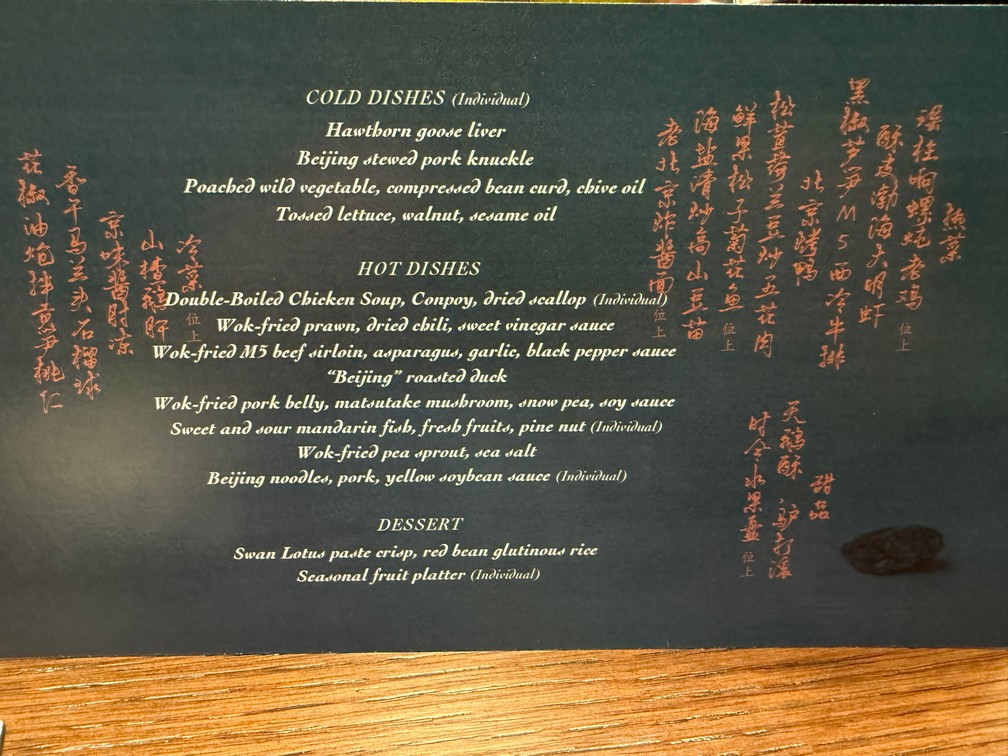 COLD DISHES (Individual)
Hawthorn goose liver
Beijing stewed pork knuckle
Poached wild vegetable, compressed bean curd, chive oil
Tossed lettuce, walnut, sesame oil
HOT DISHES
Double-Boiled Chicken Soup, Conpoy, dried scallop (Individual)
Wok-fried prawn, dried chili, sweet vinegar sauce
Wok-fried M5 beef sirloin, asparagus, garlic, black pepper sauce
“Beijing” roasted duck
Wok-fried pork belly, matsutake mushroom, snow pea, soy sauce
Sweet and sour mandarin fish, fresh fruits, pine nut (Individual)
Wok-fried pea sprout, sea salt
Beijing noodles, pork, yellow soybean sauce (Individual)
DESSERT
Swan Lotus paste crisp, red bean glutinous rice
Seasonal fruit platter (Individual)
冷菜 位上
山楂鹅肝
京味醬肘凍
香干马兰头石榴球
花椒油炝拌萵笋桃仁
热菜
响螺炖老鸡 位上
酥皮渤海大明虾
黑椒芦笋M5西冷牛排
北京烤鸭
松茸荷兰豆炒五花肉
鲜果松子菊花鱼 位上
海盐清炒高山豆苗
老北京炸醬面 位上
甜品
天鹅酥 驴打滚
时令水果盘 位上